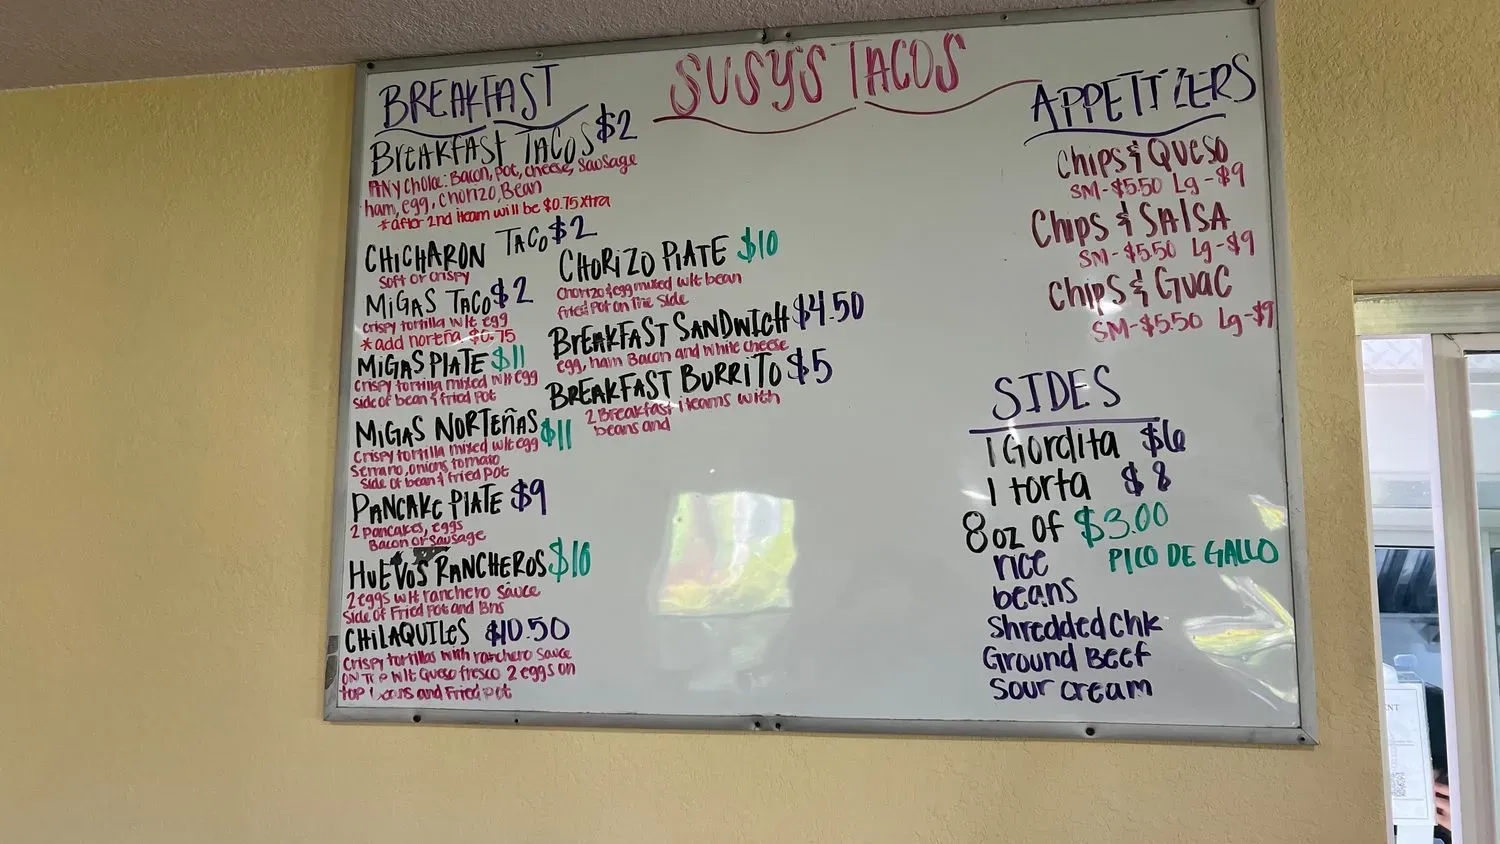 SUSYS TACOS
BREAKFAST
BREAKFAST TACOS $2
ANY Choice: Bacon, Pot, cheese, Sausage
ham, egg, chorizo, Bean
*after 2nd iteam will be $0.75 xtra
CHICHARON TACO $2
soft or crispy
MIGAS TACO $2
crispy tortilla wit egg
*add norteña $0.75
MIGAS PLATE $11
Crispy tortilla mixed wit egg
side of bean & fried Pot
MIGAS NORTEÑAS $11
Crispy tortilla mixed wit egg
Serrano, onions tomato
side of bean & fried pot
PANCAKE PLATE $9
2 pancakes, eggs
Bacon or sausage
HUEVOS RANCHEROS $10
2 eggs wit ranchero sauce
Side of Fried Pot and Bns
CHILAQUILES $10.50
Crispy tortillas with ranchero sauce
ON TOP wit Queso fresco 2 eggs on
top and Fried pot
CHORIZO PLATE $10
Chorizo & egg mixed wit bean
fried Pot on the side
BREAKFAST SANDWICH $4.50
egg, ham Bacon and white cheese
BREAKFAST BURRITO $5
2 Breakfast iteams with
beans and
APPETIZERS
Chips & QUESO
SM-$5.50 Lg-$9
Chips & SALSA
SM-$5.50 Lg-$9
Chips & GUAC
SM-$5.50 Lg-$9
SIDES
1 Gordita $6
1 torta $8
8oz of $3.00
rice PICO DE GALLO
beans
Shredded Chk
Ground Beef
Sour cream